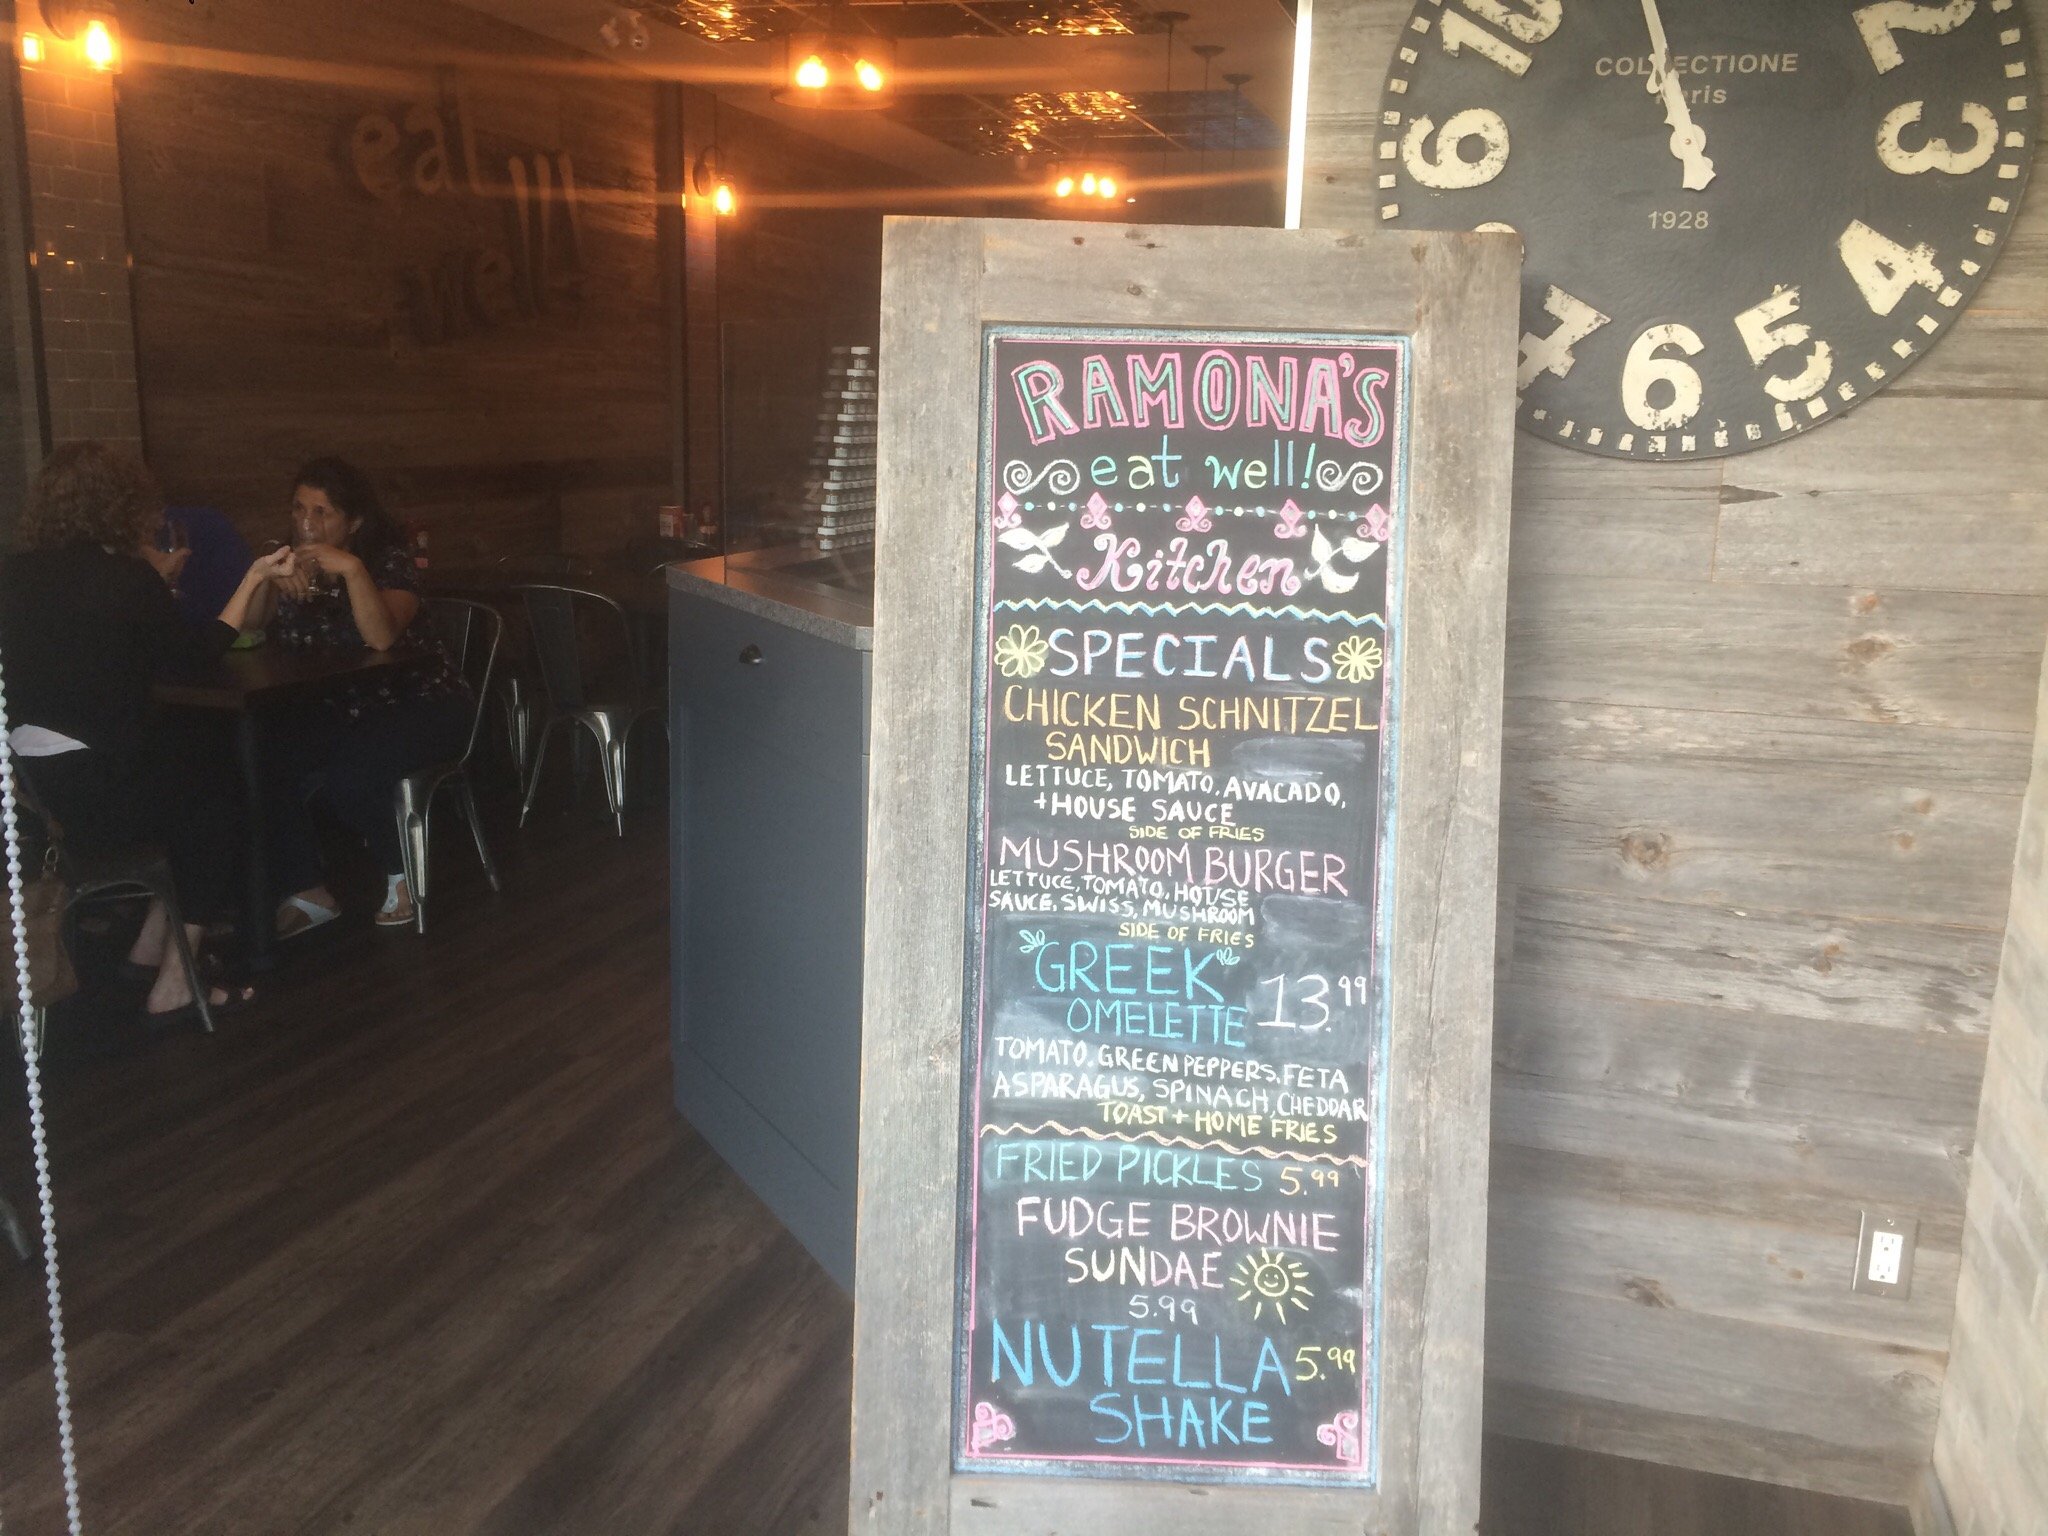 eat
well!
RAMONA'S
eat well!
Kitchen
SPECIALS
CHICKEN SCHNITZEL
SANDWICH
LETTUCE, TOMATO, AVACADO,
+ HOUSE SAUCE
SIDE OF FRIES
MUSHROOM BURGER
LETTUCE, TOMATO, HOUSE
SAUCE, SWISS, MUSHROOM
SIDE OF FRIES
"GREEK"
OMELETTE 13.99
TOMATO, GREEN PEPPERS, FETA
ASPARAGUS, SPINACH, CHEDDAR
TOAST + HOME FRIES
FRIED PICKLES 5.99
FUDGE BROWNIE
SUNDAE
5.99
NUTELLA 5.99
SHAKE
10
2
COLLECTIONE
Paris
9
3
1928
4
7
6
5